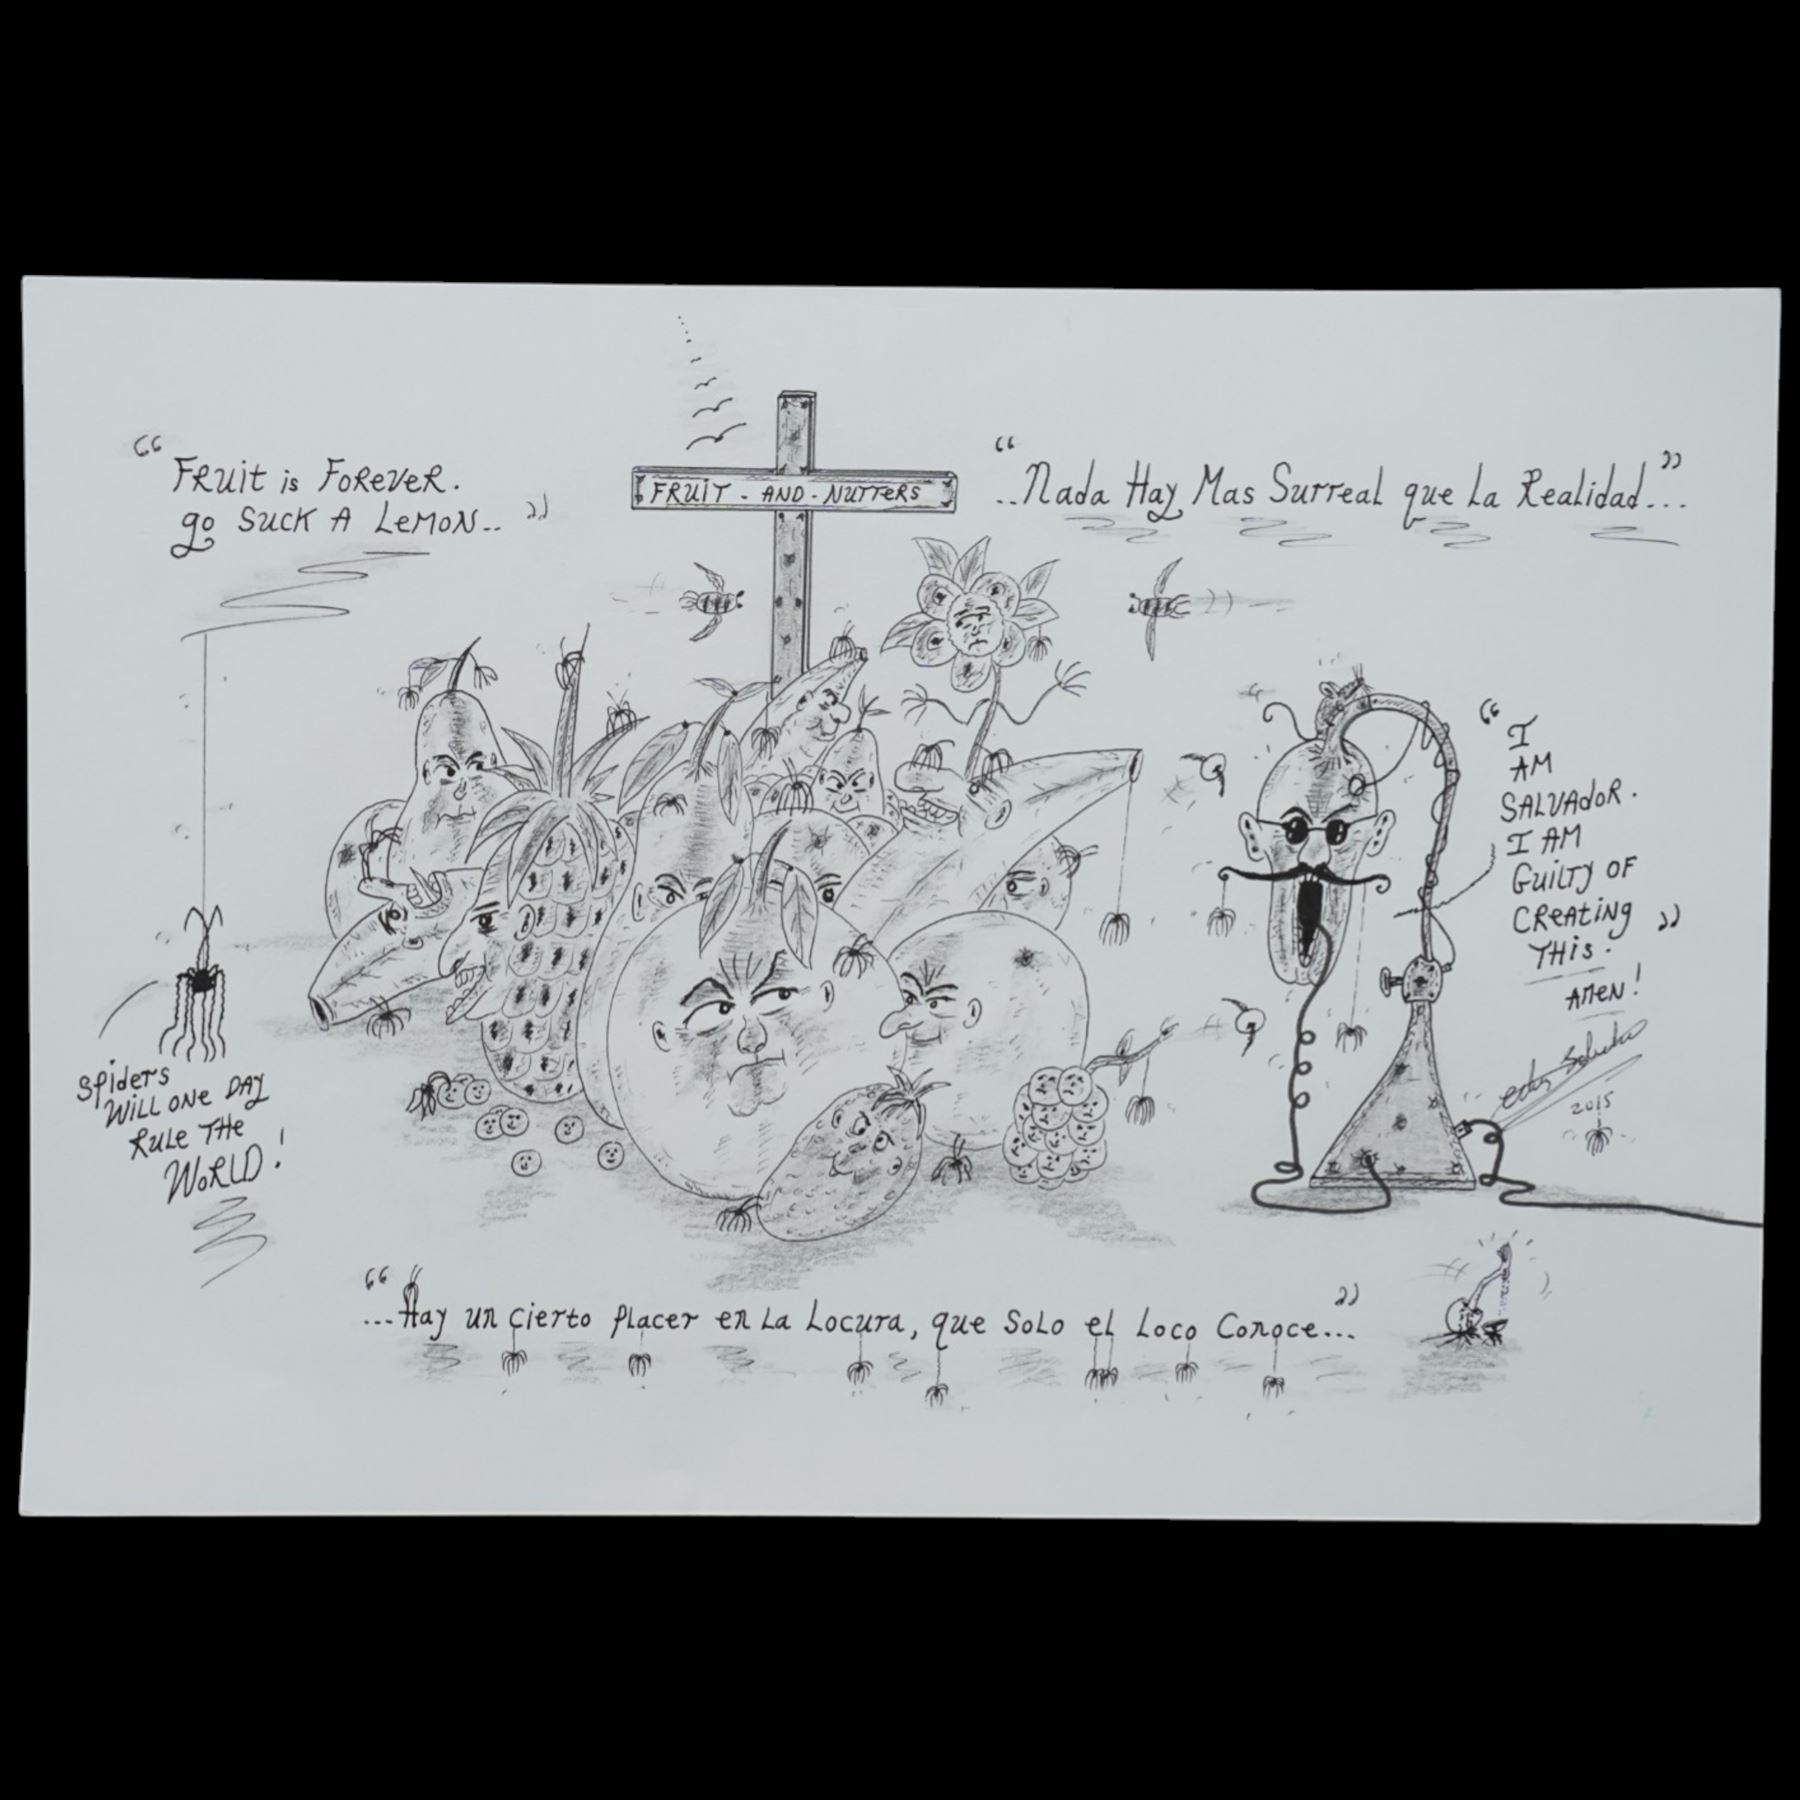 “FRUit is FOREVER.
go SUCK A LEMON.. ”
FRUiT - AND - NUTTERS
“ ..Nada Hay Mas Surreal que La Realidad... ”
“ I
AM
SALVADOR.
I AM
GUILTY OF
CREATING
THIS. ”
AMEN!
2015
Spiders
WILL ONE DAY
RULE THE
WORLD!
“ ...Hay un cierto placer en La Locura, que SoLo el Loco Conoce... ”